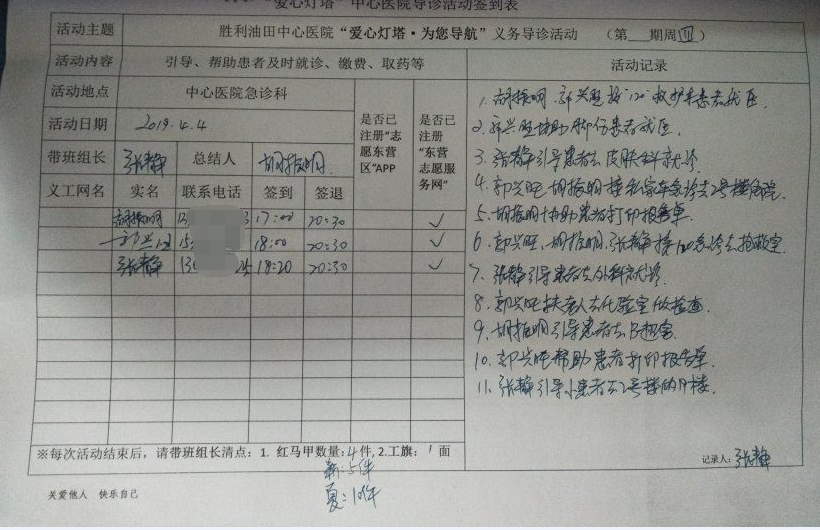 "爱心灯塔"中心医院导诊活动签到表
活动主题 胜利油田中心医院"爱心灯塔·为您导航"义务导诊活动 (第 期周四)
活动内容 引导、帮助患者及时就诊、缴费、取药等 活动记录
活动地点 中心医院急诊科
活动日期 2019.4.4
带班组长 张静 总结人 胡振明
是否已注册"志愿东营区"APP
是否已注册"东营志愿服务网"
义工网名 实名 联系电话 签到 签退
胡振明 13 3 17:00 20:30 ✓
郭兴旺 15 18:00 20:30 ✓
张静 13 18:20 20:30 ✓
1. 胡振明、郭兴旺接"120"救护车患者就医.
2. 郭兴旺协助脚伤患者就医.
3. 张静引导患者去皮肤科就诊
4. 郭兴旺、胡振明接私家车急诊去2号楼住院
5. 胡振明协助患者打印报告单.
6. 郭兴旺、胡振明、张静接120急诊去抢救室.
7. 张静引导患者去外科就诊
8. 郭兴旺扶老人去化验室做检查.
9. 胡振明引导患者去B超室.
10. 郭兴旺帮助患者打印报告单.
11. 张静引导小患者去2号楼
记录人: 张静
※每次活动结束后，请带班组长清点：1. 红马甲数量:4件, 2.工旗：1面
新:5件
夏:10件
关爱他人 快乐自己